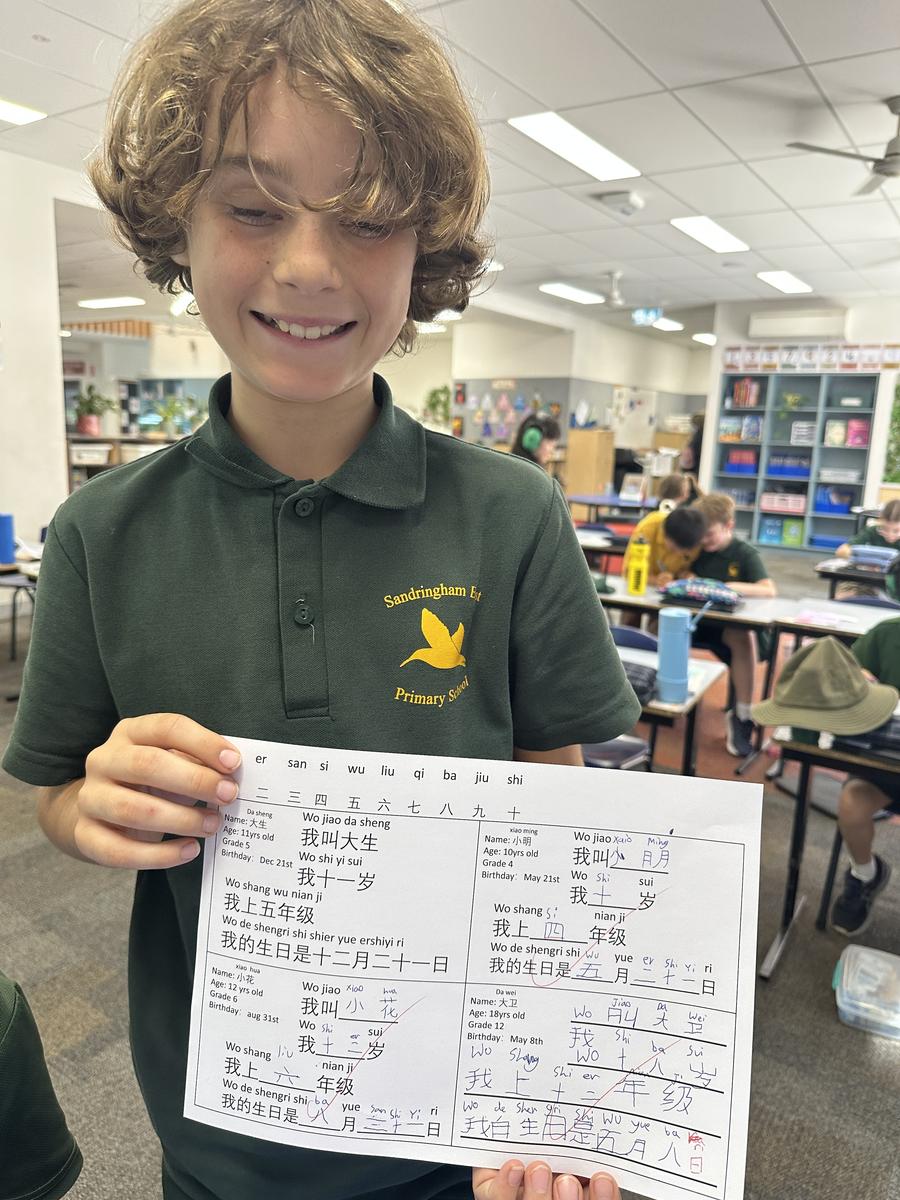 Sandringham East
Primary School
er san si wu liu qi ba jiu shi
二 三 四 五 六 七 八 九 十
Da sheng
Name: 大生
Age: 11yrs old
Grade 5
Birthday: Dec 21st
Wo jiao da sheng
我叫大生
Wo shi yi sui
我十一岁
Wo shang wu nian ji
我上五年级
Wo de shengri shi shier yue ershiyi ri
我的生日是十二月二十一日
xiao ming
Name: 小明
Age: 10yrs old
Grade 4
Birthday: May 21st
Wo jiao xiao ming
我叫小 明
Wo shi sui
我 十 岁
Wo shang si nian ji
我上 四 年级
Wo de shengri shi wu yue er shi yi ri
我的生日是 五 月 二 十 二 日
xiao hua
Name: 小花
Age: 12 yrs old
Grade 6
Birthday: aug 31st
Wo jiao xiao hua
我叫 小 花
Wo shi er sui
我 十 二 岁
Wo shang liu nian ji
我上 六 年级
Wo de shengri shi ba yue san shi yi ri
我的生日是 八 月 三 十 一 日
Da wei
Name: 大卫
Age: 18yrs old
Grade 12
Birthday: May 8th
Wo jiao Da Wei
我 叫 大 卫
Wo shi ba sui
十 八 岁
Wo Shang shi er
我 上 十 二 年 级
Wo de Shen gri shi wu yue ba
我 白 生日 是 五 月 八 日